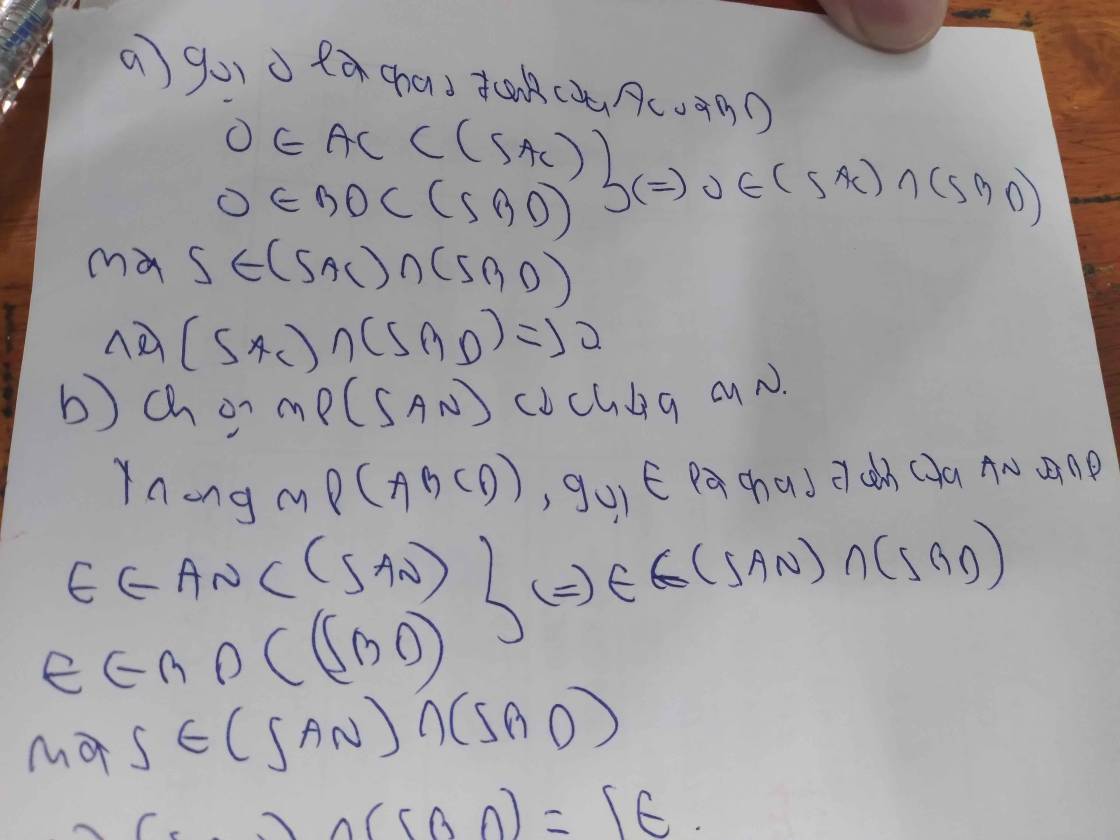 a) gọi O là giao điểm của AC và BD
O ∈ AC ⊂ (SAC)
O ∈ BD ⊂ (SBD) } (=) O ∈ (SAC) ∩ (SBD)
mà S ∈ (SAC) ∩ (SBD)
(SAC) ∩ (SBD) = SO
b) Chọn mp (SAN) có chứa MN.
Trong mp (ABCD), gọi E là giao điểm của AN và BD
E ∈ AN ⊂ (SAN)
E ∈ BD ⊂ (SBD) } (=) E ∈ (SAN) ∩ (SBD)
mà S ∈ (SAN) ∩ (SBD)
∩ (SBD) = SE.